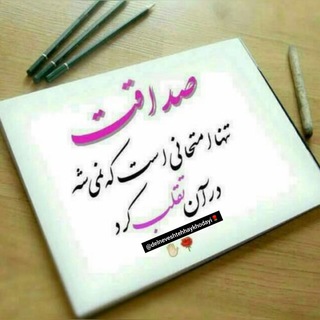 صداقت
تنها امتحانی است که نمی شه
در آن تقلب کرد
@delneveshtehhaykhodayi